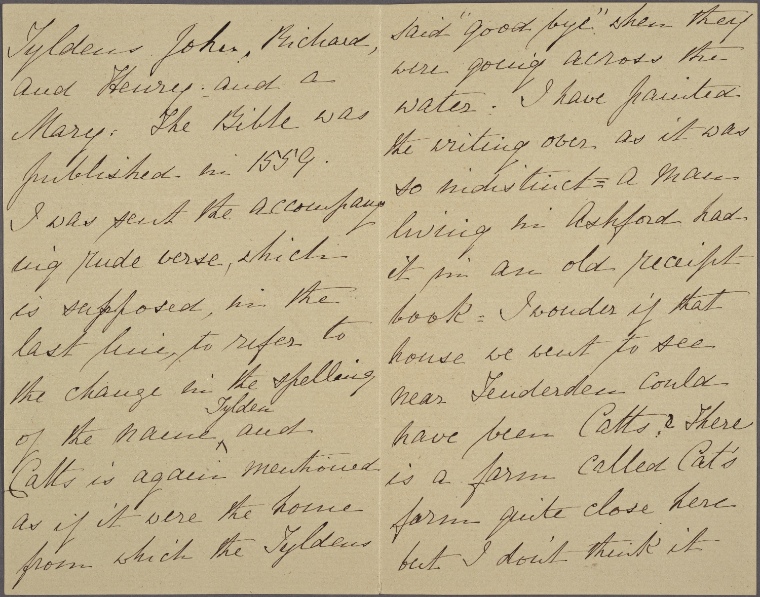 Tyldens John, Richard,
and Henry - and a
Mary. The Bible was
published in 1559.
I was sent the accompany
ing rude verse, which
is supposed, in the
last line, to refer to
the change in the spelling
of the name ^Tylden and
Catts is again mentioned
as if it were the home
from which the Tyldens
said "good bye" when they
were going across the
water. I have painted
the writing over as it was
so indistinct = a man
living in Ashford had
it in an old receipt
book = I wonder if that
house we went to see
near Tenderden could
have been Catts? There
is a farm called Cat's
farm quite close here
but I don't think it